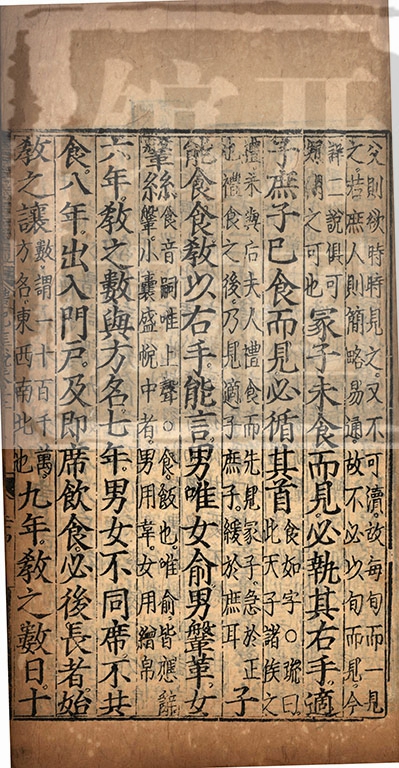 父則欲時時見之又不可瀆故每旬而一見
之若庶人則簡略易通故不必以旬而見今
詳二說俱可
類之可也
冢子未食而見必執其右手適
子庶子已食而見必循其首
食如字○疏曰
此天子諸侯之
禮未與后夫人禮食而先見冢子急於正
也禮食之後乃見適子庶子緩於庶耳
子
能食食教以右手能言男唯女俞男鞶革女
鞶絲
食音嗣唯上聲○食飯也唯俞皆應辭
鞶小囊盛帨巾者男用韋女用繒帛
六年教之數與方名七年男女不同席不共
食八年出入門戶及即席飲食必後長者始
教之讓
數謂一十百千萬
方名東西南北也
九年教之數日十